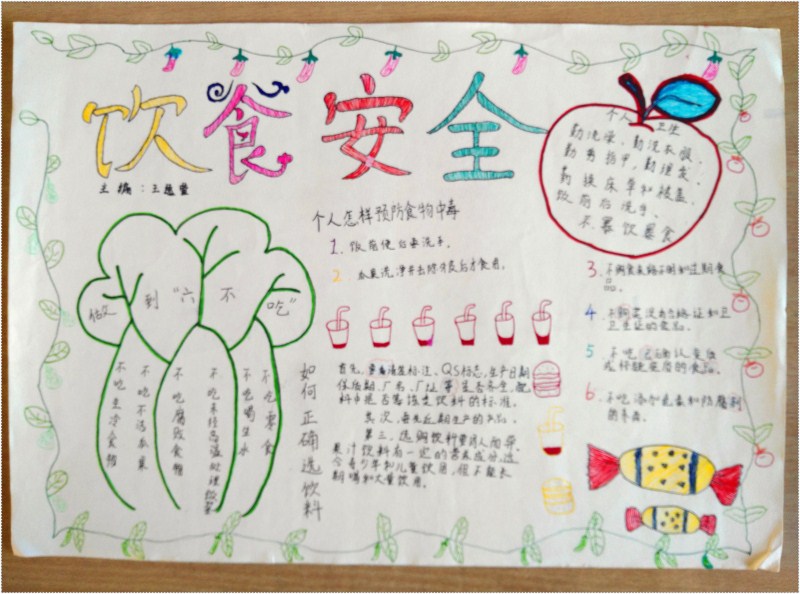 饮食安全
主编：王惠莹
个人卫生
勤洗澡，勤洗衣服、
勤剪指甲，勤理发、
勤换床单和被盖、
饭前后洗手、
不暴饮暴食
个人怎样预防食物中毒
1. 饭前便后要洗手。
2. 瓜果洗净并去除外皮后才食用。
3. 不购食来路不明和过期食
品。
4. 不购买没有合格证和卫
生证的食品。
5 不吃已确认变质
或怀疑变质的食品。
6. 不吃添加色素和防腐剂
的食品。
做到“六不吃”
不吃生冷食物
不吃不洁瓜果
不吃腐败食物
不吃未经高温处理饭菜
不吃喝生水
不吃零食
如何正确选饮料
首先，查看清签标注、QS标志、生产日期
保质期、厂名、厂址等是否齐全，配
料中是否写该类饮料的标准。
其次，要先近期生产的产品。
第三，选购饮料要因人而异。
果汁饮料有一定的营养成分，适
合青少年和儿童饮用，但不能长
期喝和大量饮用。